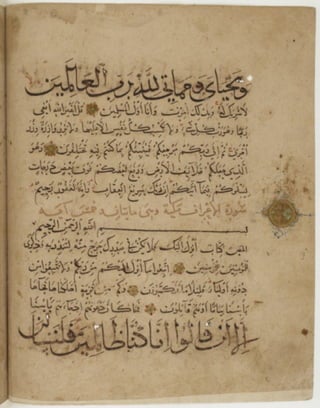 ومحياي ومماتي لله رب العالمين
لا شريك له وبذلك امرت وانا اول المسلمين قل اغير الله ابغي
ربا وهو رب كل شيء ولا تكسب كل نفس الا عليها ولا تزر وازرة وزر
اخرى ثم الى ربكم مرجعكم فينبئكم بما كنتم فيه تختلفون وهو
الذي جعلكم خلائف الارض ورفع بعضكم فوق بعض درجات
ليبلوكم في ما اتاكم ان ربك سريع العقاب وانه لغفور رحيم
سورة الاعراف مكية وهي مائتان خمس اية
بسم الله الرحمن الرحيم
المص كتاب انزل اليك فلا يكن في صدرك حرج منه لتنذر به وذكرى
للمؤمنين اتبعوا ما انزل اليكم من ربكم ولا تتبعوا من
دونه اولياء قليلا ما تذكرون وكم من قرية اهلكناها فجاءها
باسنا بياتا او هم قائلون فما كان دعويهم اذ جاءهم باسنا
الا ان قالوا انا كنا ظالمين فلنسئلن